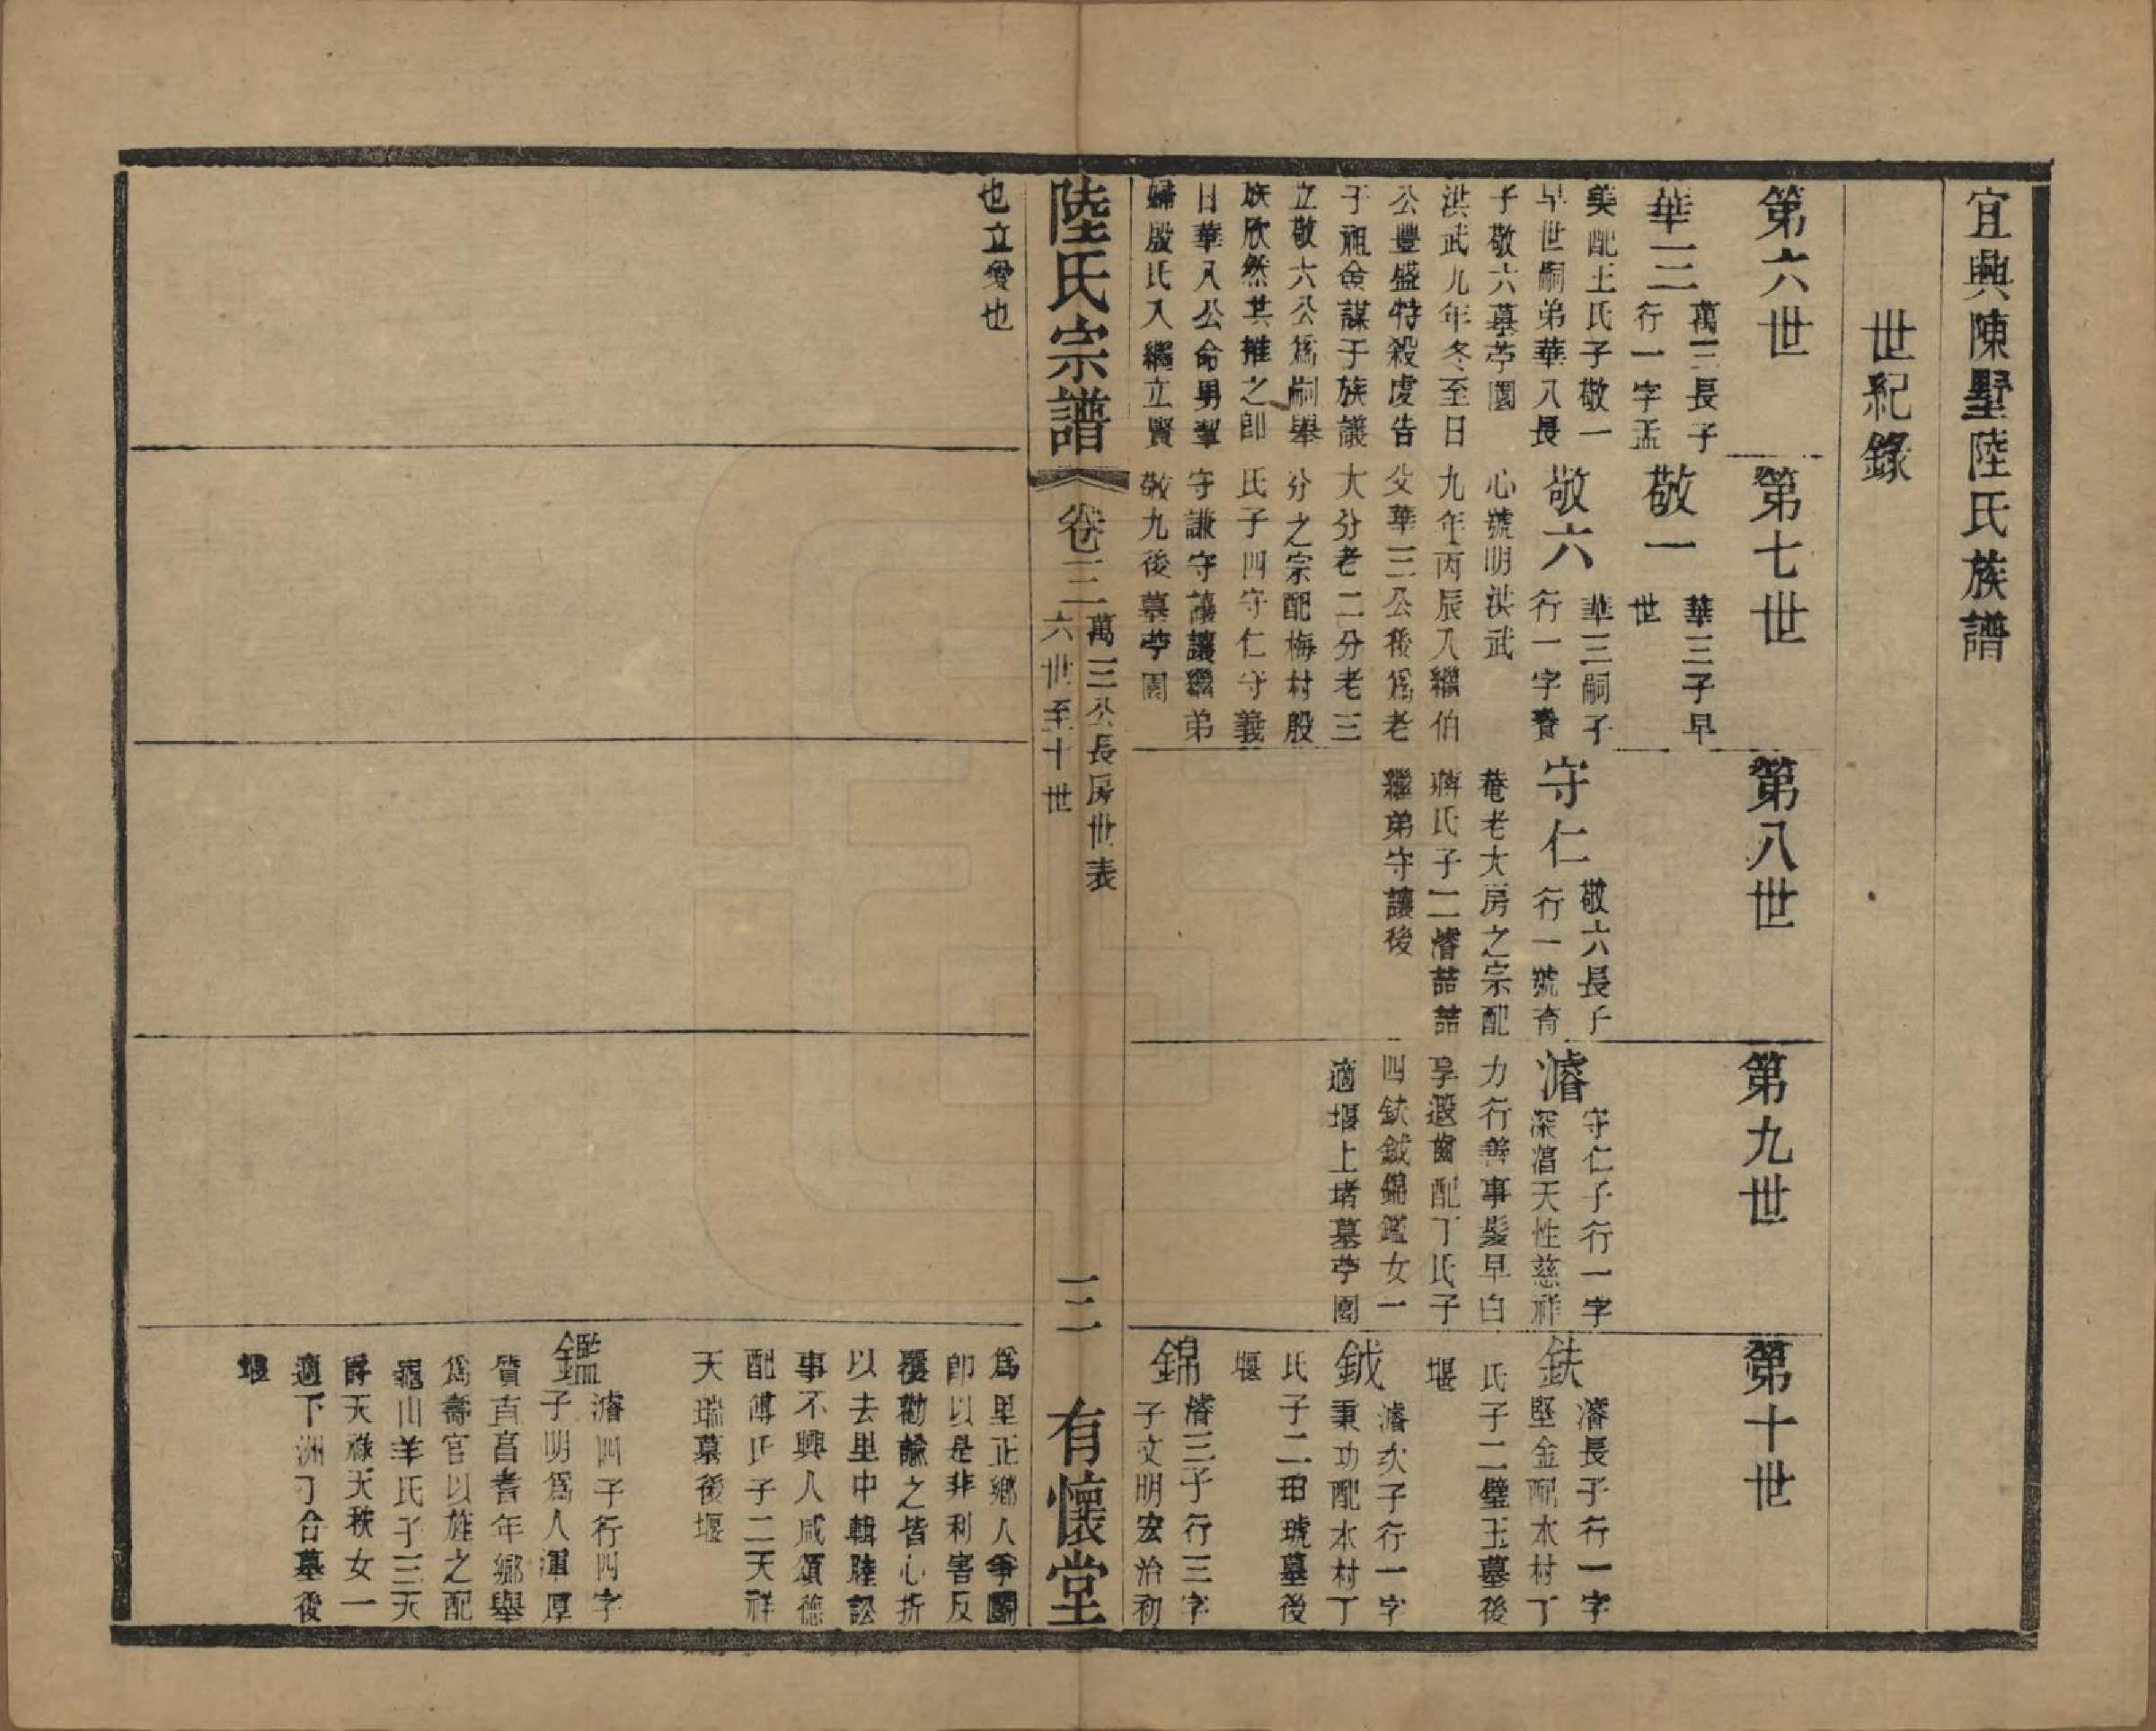 宜興陳墅陸氏族譜
世紀錄
第六世
華三
萬三長子
行一字孟
美配王氏子敬一
早世嗣弟華八長
子敬六墓苧園
洪武九年冬至日
公豐盛特殺虔告
于祖僉謀于族議
立敬六公爲嗣舉
族欣然其推之卽
日華八公命男挈
婦殷氏入繼立賢
也立愛也
第七世
敬一
華三子早
世
敬六
華三嗣子
行一字養
心號明洪武
九年丙辰入繼伯
父華三公後爲老
大分老二分老三
分之宗配梅村殷
氏子四守仁守義
守謙守讓讓繼弟
敬九後墓苧園
第八世
守仁
敬六長子
行一號育
菴老大房之宗配
蔣氏子二濬喆喆
繼弟守讓後
第九世
濬
守仁子行一字
深湻天性慈祥
力行善事髮早白
享遐齒配丁氏子
四鈇鉞錦鑑女一
適堰上堵墓苧園
第十世
鈇
濬長子行一字
堅金配水村丁
氏子二璧玉墓後
堰
鉞
濬次子行一字
秉功配水村丁
氏子二玿琥墓後
堰
錦
濬三子行三字
子文明宏治初
爲里正鄉人爭鬬
卽以是非利害反
覆勸諭之皆心折
以去里中輯睦訟
事不興人咸頌德
配傅氏子二天祥
天瑞墓後堰
鑑
濬四子行四字
子明爲人渾厚
質直菖耆年鄉舉
爲壽官以旌之配
龜山羊氏子三天
爵天祿天秩女一
適下洲丁合墓後
堰
陸氏宗譜
卷三
萬三公長房世表
六世至十世
三
有懷堂